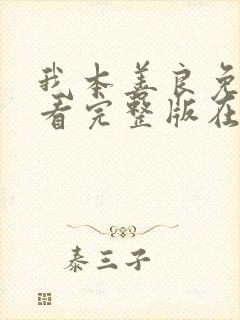 我本善良免
看完整版在
泰三子